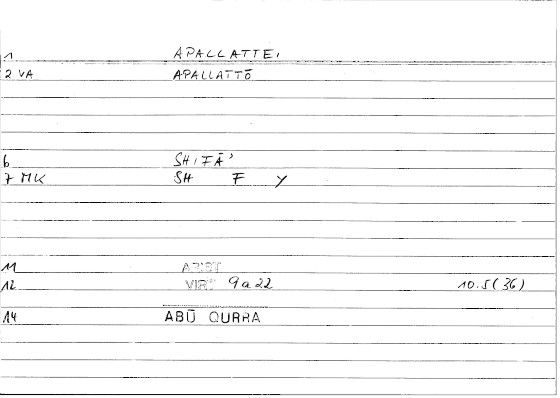 1 APALLATTEI
2 VA APALLATTŌ
6 SHIFĀʾ
7 MK SH F Y
11 ARIST
12 VIRT 9a22 10.5(36)
14 ABŪ QURRA